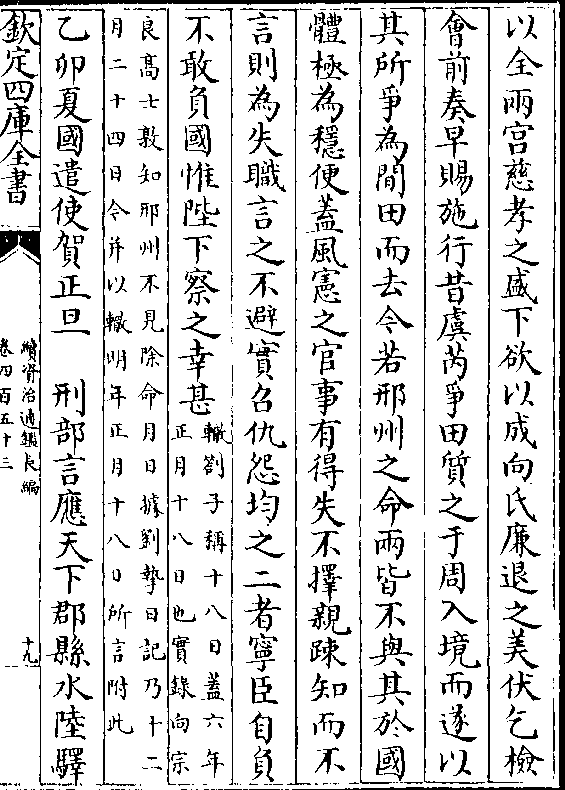 以全兩宫慈孝之盛下欲以成向氏廉退之美伏乞檢
會前奏早賜施行昔虞芮爭田質之于周入境而遂以
其所爭為間田而去今若邢州之命兩皆不與其於國
體極為穩便蓋風憲之官事有得失不擇親疎知而不
言則為失職言之不避實召仇怨均之二者寧臣自負
不敢負國惟陛下察之幸甚
轍劄子稱十八日蓋六年
正月十八日也實錄向宗
良髙士敦知邢州不見除命月日據劉摯日記乃十二
月二十四日今并以轍明年正月十八日所言附此
乙卯夏國遣使賀正旦　刑部言應天下郡縣水陸驛
欽定四庫全書
續資治通鑑長編
卷四百五十三
十九